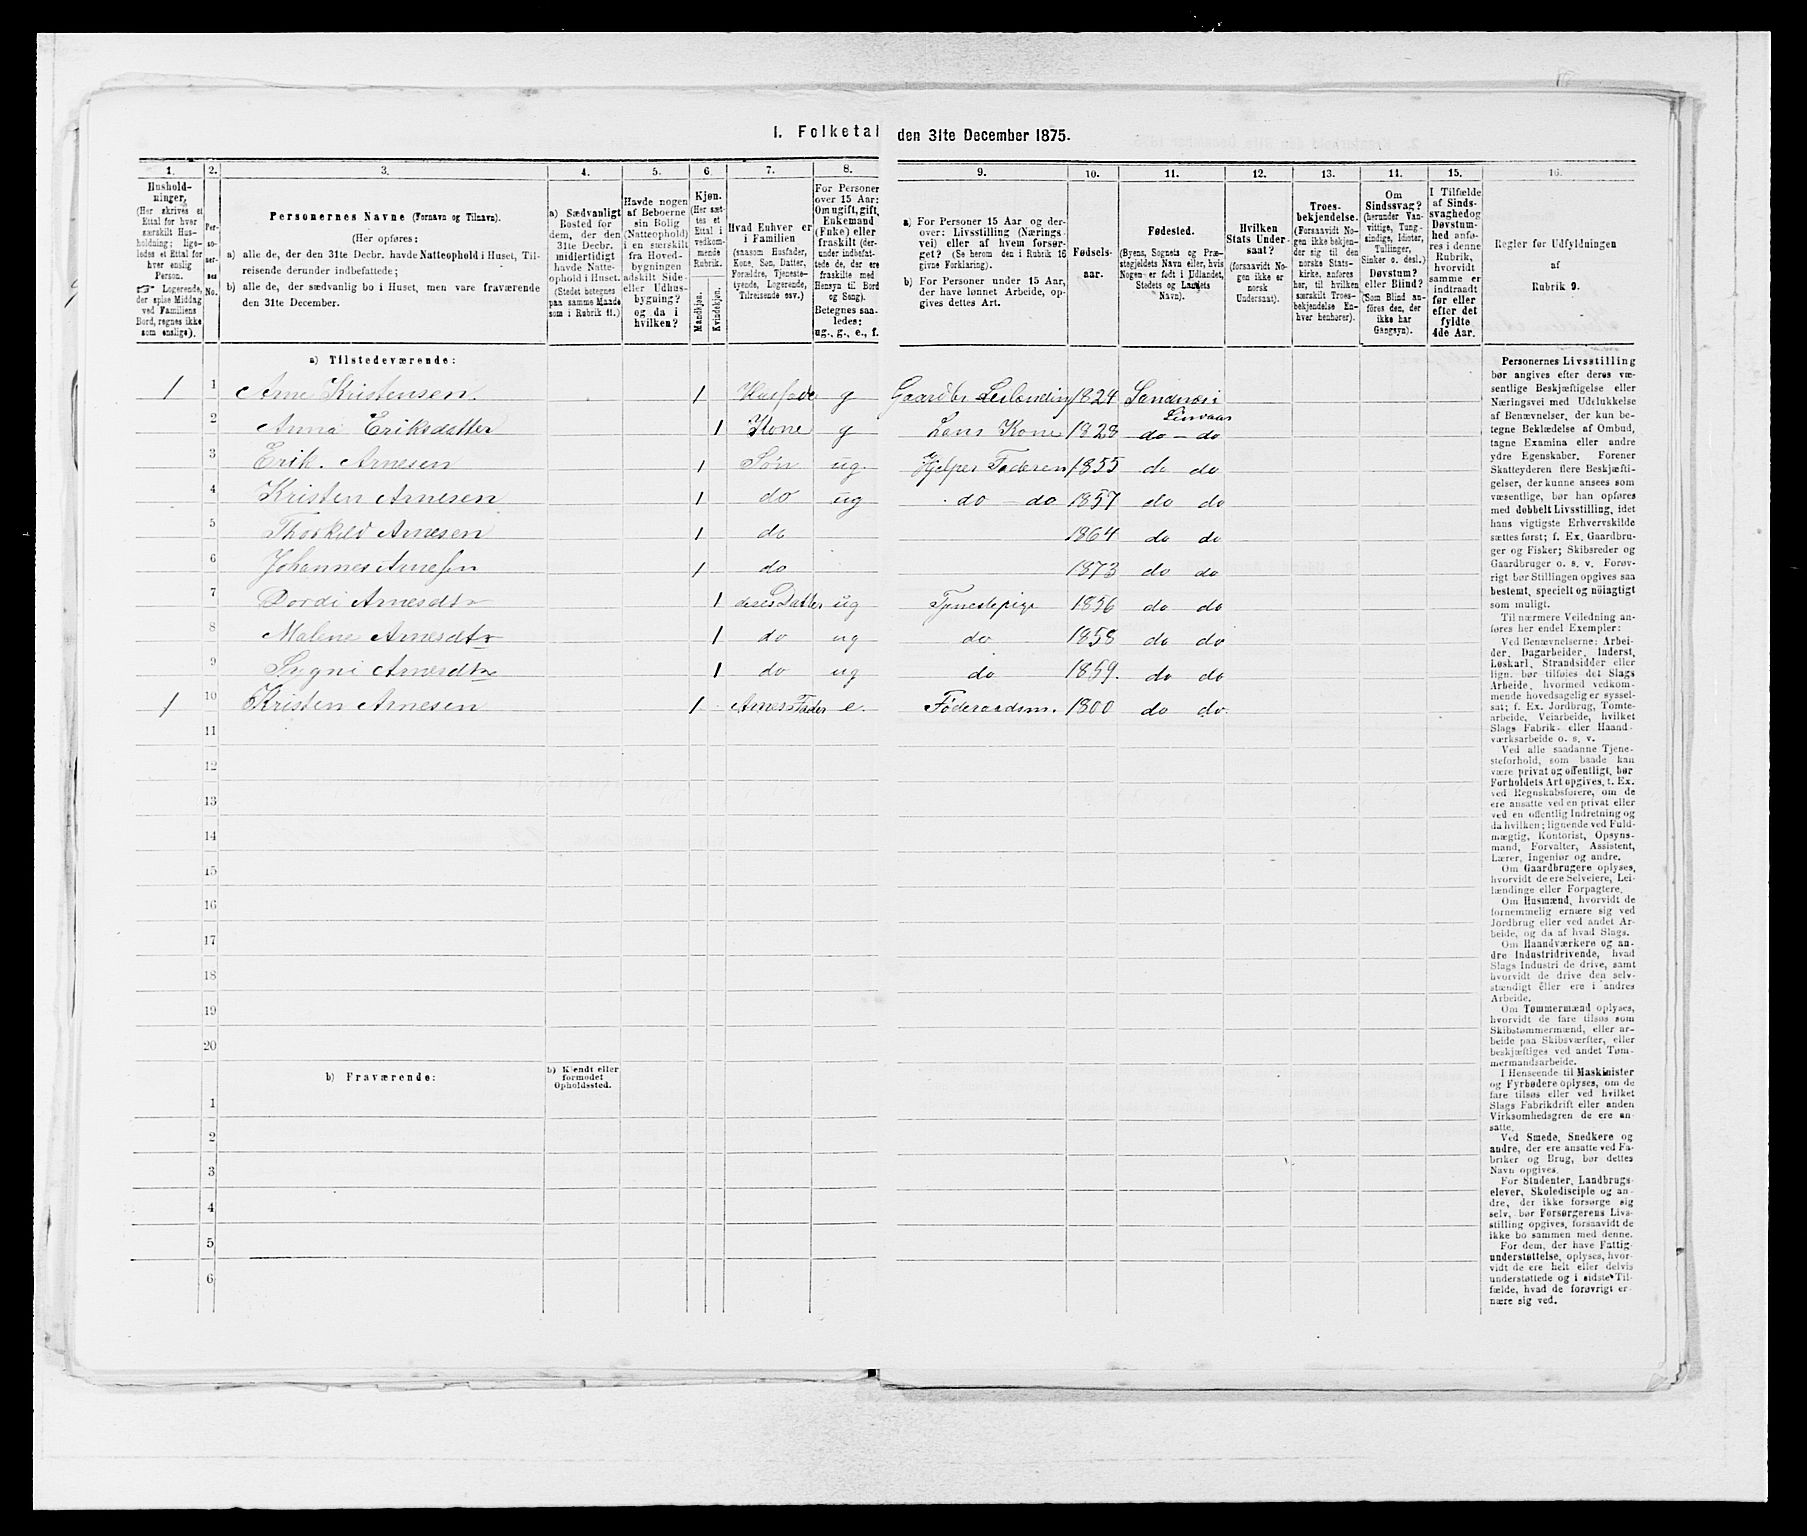 I. Folketal den 31te December 1875.
1. 2. 3. 4. 5. 6. 7. 8. 9. 10. 11. 12. 13. 14. 15. 16.
Hushold-
ninger.
(Her skrives et
Ettal for hver
særskilt Hus-
holdning; lige-
ledes et Ettal for
hver enslig
Person.
☞ Logerende,
der spise Middag
ved Familiens
Bord, regnes ikke
som enslige).
Per-
so-
ner-
nes
No.
Personernes Navne (Fornavn og Tilnavn).
(Her opføres:
a) alle de, der den 31te Decbr. havde Natteophold i Huset, Til-
reisende derunder indbefattede;
b) alle de, der sædvanlig bo i Huset, men vare fraværende
den 31te December.
a) Sædvanligt
Bosted for
dem, der den
31te Decbr.
midlertidigt
havde Natte-
ophold i Huset.
(Stedet betegnes
paa samme Maade
som i Rubrik 11.)
Havde nogen
af Beboerne
sin Bolig
(Natteophold)
i en særskilt
fra Hoved-
bygningen
adskilt Side-
eller Udhus-
bygning?
og da i
hvilken?
Kjøn.
(Her sæt-
tes et
Ettal i
vedkom-
mende
Rubrik.
Mandkjøn.
Kvindekjøn.
Hvad Enhver er
i Familien
(saasom Husfader,
Kone, Søn, Datter,
Forældre, Tjeneste-
tyende, Logerende,
Tilreisende osv.)
For Personer
over 15 Aar:
Om ugift, gift,
Enkemand
(Enke) eller
fraskilt (der-
under indbefat-
tede de, der ere
fraskilte med
Hensyn til Bord
og Seng).
Betegnes saa-
ledes:
ug., g., e., f.
a) For Personer 15 Aar og der-
over: Livsstilling (Nærings-
vei) eller af hvem forsør-
get? (Se herom den i Rubrik 16
givne Forklaring).
b) For Personer under 15 Aar,
der have lønnet Arbeide, op-
gives dettes Art.
Fødsels-
aar.
Fødested.
(Byens, Sognets og Præ-
stegjeldets Navn eller, hvis
Nogen er født i Udlandet,
Stedets og Landets
Navn).
Hvilken
Stats Under-
saat?
(forsaavidt No-
gen ikke er
norsk
Undersaat).
Troes-
bekjendelse.
(Forsaavidt No-
gen ikke bekjen-
der sig til den
norske Stats-
kirke, anføres
her, til hvilken
særskilt Troes-
bekjendelse En-
hver henhører).
Om
Sindssvag?
(herunder Van-
vittige, Tung-
sindige, Idioter,
Tullinger,
Sinker o. desl.)
Døvstum?
eller Blind?
(Som Blind an-
føres den, der
ikke har
Gangsyn).
I Tilfælde
af Sinds-
svaghed og
Døvstum-
hed anfø-
res i denne
Rubrik,
hvorvidt
samme er
indtraadt
før eller
efter det
fyldte
4de Aar.
Regler for Udfyldningen
af
Rubrik 9.
a) Tilstedeværende:
1 1 Arne Kristensen. 1 Husfader g Gaardbr Leilending 1824 Sandnes i
Lisvaas
2 Anna Eriksdatter 1 Kone g Hans Kone 1828 do - do
3 Erik. Arnesen 1 Søn ug. Hjelper Faderen 1855 do do
4 Kristen Arnesen 1 do ug do - do 1857 do do
5 Thorkild Arnesen 1 do 1864 do do
6 Johannes Arnesen 1 do 1873 do do
7 Dordi Arnesdtr 1 deres Datter ug Tjenestepige 1856 do do
8 Malene Arnesdtr 1 do ug do 1858 do do
9 Signi Arnesdtr 1 do ug do 1859. do do
1 10 Kristen Arnesen 1 Arnes Fader e. Föderaadsm. 1800 do do.
11
12
13
14
15
16
17
18
19
20
b) Fraværende:
b) Kjendt eller
formodet
Opholdssted.
1
2
3
4
5
6
Personernes Livsstilling
bør angives efter deres væ-
sentlige Beskjæftigelse eller
Næringsvei med Udelukkelse
af Benævnelser, der kun be-
tegne Beklædelse af Ombud,
tagne Examina eller andre
ydre Egenskaber. Forener
Skatteyderen flere Beskjæfti-
gelser, der kunne ansees som
væsentlige, bør han opføres
med dobbelt Livsstilling, idet
hans vigtigste Erhvervskilde
sættes først; f. Ex. Gaardbru-
ger og Fisker; Skibsreder og
Gaardbruger o. s. v. Forøv-
rigt bør Stillingen opgives saa
bestemt, specielt og nöiagtigt
som muligt.
Til nærmere Veiledning an-
føres her endel Exempler:
Ved Benævnelserne: Arbei-
der, Dagarbeider, Inderst,
Løskarl, Strandsidder eller
lign. bør tilføies det Slags
Arbeide, hvormed vedkom-
mende hovedsagelig er syssel-
sat; f. Ex. Jordbrug, Tomte-
arbeide, Veiarbeide, hvilket
Slags Fabrik- eller Haand-
værksarbeide o. s. v.
Ved alle saadanne Tjene-
steforhold, som baade kan
være privat og offentligt, bør
Forholdets Art opgives, t. Ex.
ved Regnskabsførere, om de
ere ansatte ved en privat eller
ved en offentlig Indretning og
da hvilken; lignende ved Fuld-
mægtig, Kontorist, Opsyns-
mand, Forvalter, Assistent,
Lærer, Ingeniør og andre.
Om Gaardbrugere oplyses,
hvorvidt de ere Selveiere, Lei-
lændinge eller Forpagtere.
Om Husmænd, hvorvidt de
fornemmelig ernære sig ved
Jordbrug eller ved andet Ar-
beide, og da af hvad Slags.
Om Haandværkere og an-
dre Industridrivende, hvad
Slags Industri de drive, samt
hvorvidt de drive den selv-
stændigt eller ere i andres
Arbeide.
Om Tømmermænd oplyses,
hvorvidt de fare tilsøs som
Skibstømmermænd, eller ar-
beide paa Skibsværfter, eller
beskjæftiges ved andet Tøm-
mermandsarbeide.
I Henseende til Maskinister
og Fyrbødere oplyses, om de
fare tilsøs eller ved hvilket
Slags Fabrikdrift eller anden
Virksomhedsgren de ere an-
satte.
Ved Smede, Snedkere og
andre, der ere ansatte ved Fa-
briker og Brug, bør dettes
Navn opgives.
For Studenter, Landbrugs-
elever, Skoledisciple og an-
dre, der ikke forsørge sig
selv, bør Forsørgerens Livs-
stilling opgives, forsaavidt de
ikke bo sammen med denne.
For dem, der have Fattig-
understøttelse, oplyses, hvor-
vidt de ere helt eller delvis
understøttede og i sidste Til-
fælde, hvad de forøvrigt er-
nære sig ved.